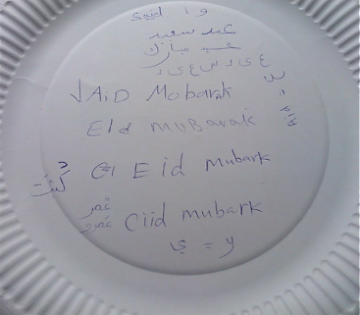 Said و ا
عيد سعيد
عيد مبارك
ع ي د س ع ي د
√ AiD Mobark
EId MUBarak
E id mubark
عمر
عمرو Ciid mubark
ي = y